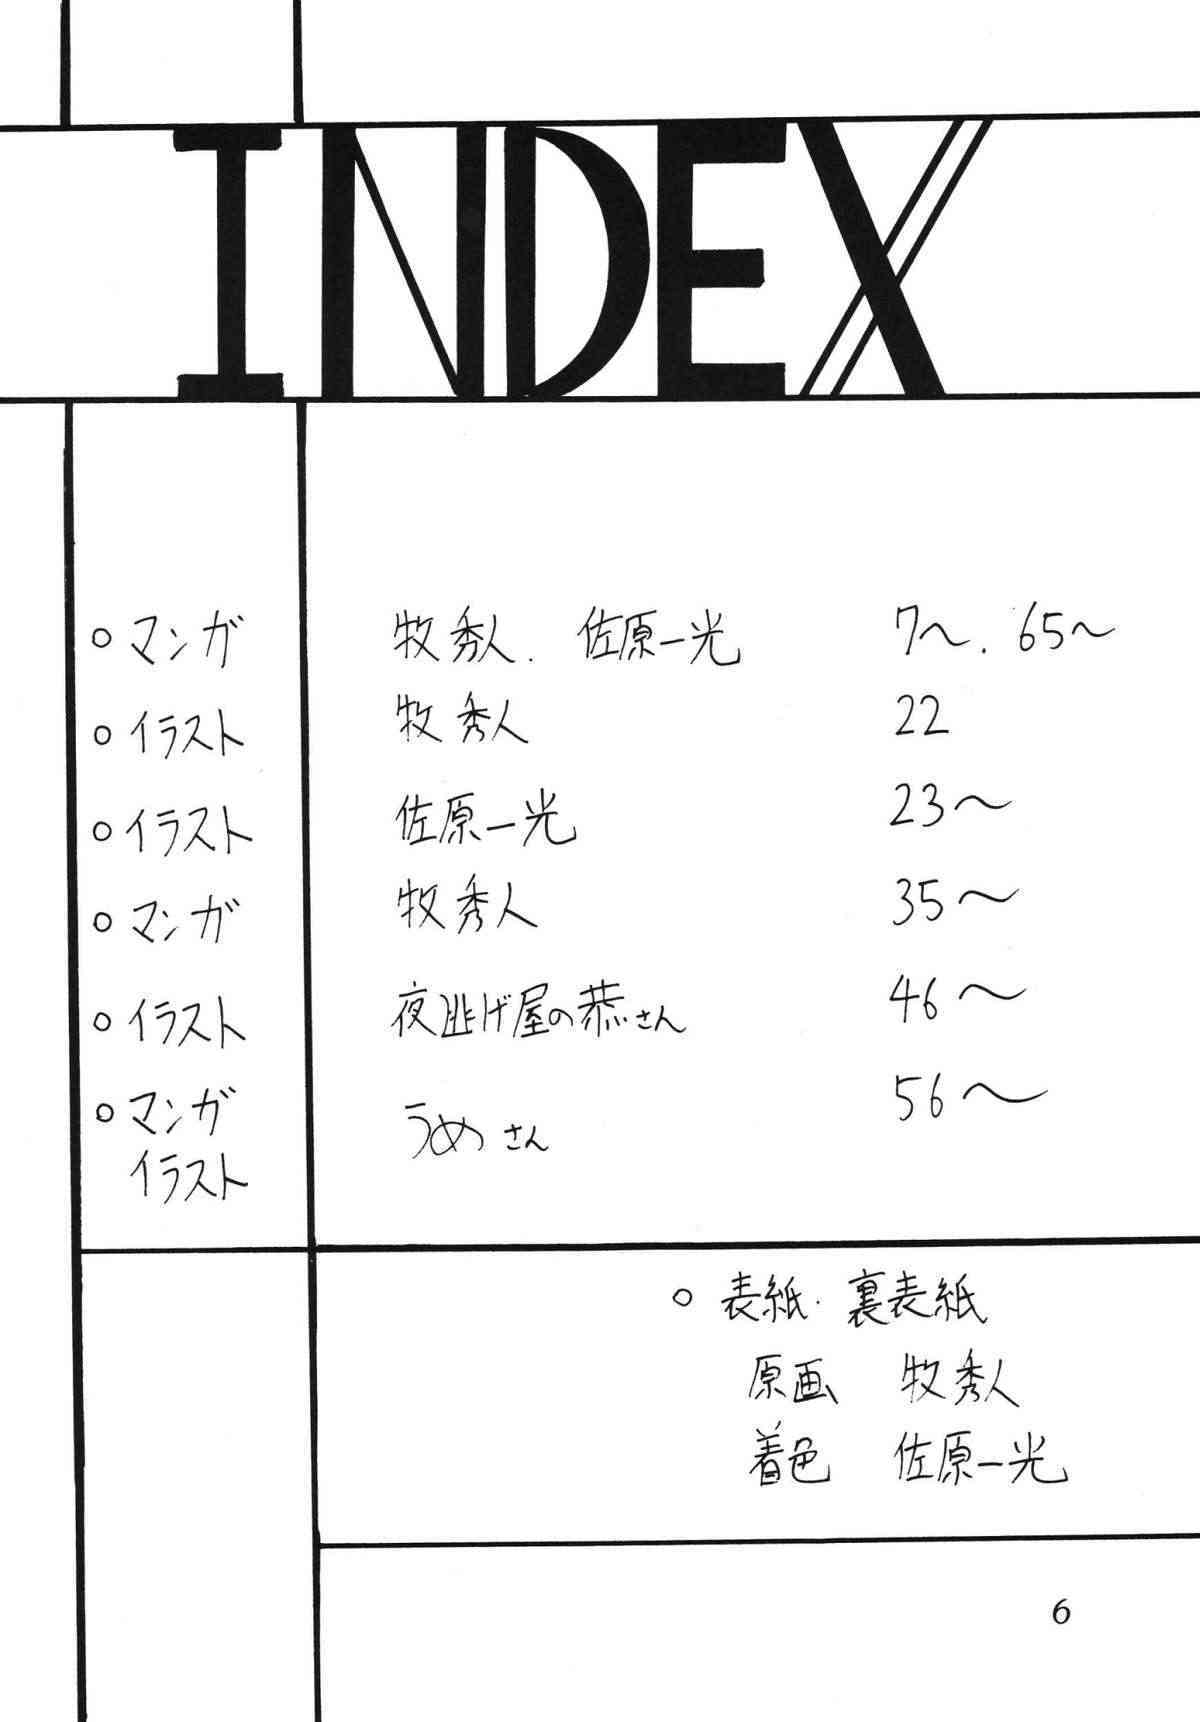 INDEX
○ マンガ 牧秀人. 佐原一光 7〜. 65〜
○ イラスト 牧秀人 22
○ イラスト 佐原一光 23〜
○ マンガ 牧秀人 35〜
○ イラスト 夜逃げ屋の恭さん 46〜
○ マンガ うめさん 56〜
イラスト
○ 表紙・裏表紙
原画 牧秀人
着色 佐原一光
6